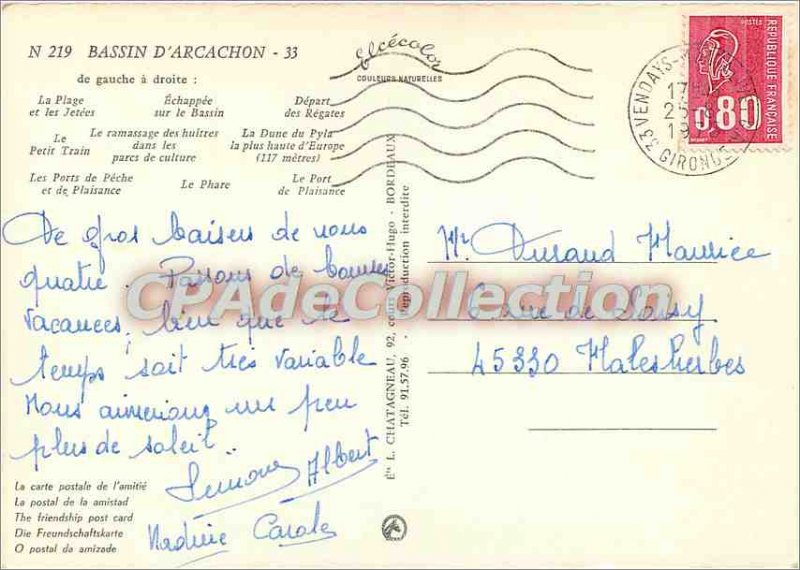 N 219 BASSIN D'ARCACHON - 33
de gauche à droite :
La Plage et les Jetées
Échappée sur le Bassin
Départ des Régates
Le Petit Train
Le ramassage des huîtres dans les parcs de culture
La Dune du Pyla la plus haute d'Europe (117 mètres)
Les Ports de Pêche et de Plaisance
Le Phare
Le Port de Plaisance
elcécolor
COULEURS NATURELLES
De gros baisers de nous
quatre. Passons de bonnes
vacances, bien que le
temps soit très variable
Nous aimerions un peu
plus de soleil.
Simone Albert
Nadine Carole
La carte postale de l'amitié
La postal de la amistad
The friendship post card
Die Freundschaftskarte
O postal da amizade
Éts L. CHATAGNEAU, 92, cours Victor-Hugo - BORDEAUX
Tél. 91.57.96 - Reproduction interdite
33 VENDAYS-M
GIRONDE
POSTES
REPUBLIQUE FRANÇAISE
0,80
Mr Durand Maurice
rue de
45330 Malesherbes
CPAdeCollection.com